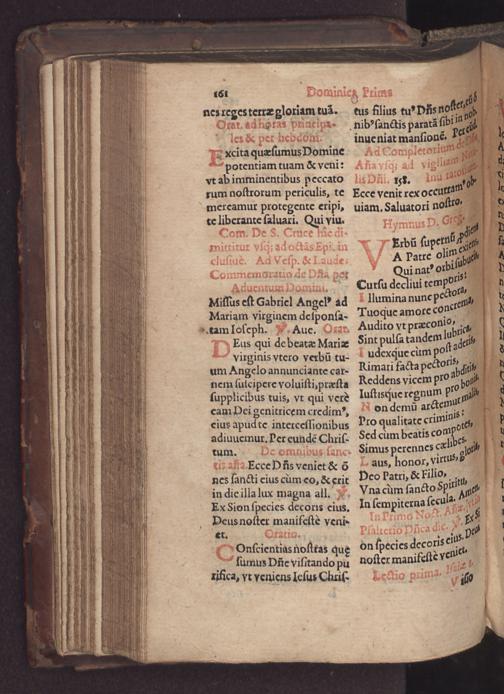 161 Dominica Prima
nes reges terræ gloriam tuã.
Orat. ad horas principa-
les & per hebdom.
Excita quæsumus Domine
potentiam tuam & veni:
vt ab imminentibus peccato
rum nostrorum periculis, te
mereamur protegente eripi,
te liberante saluari. Qui viu.
Com. De S. Cruce hic di-
mittitur vsq; ad octãs Epi. in
clusiuè. Ad Vesp. & Laudes
Commemoratio de Dña per
Aduentum Domini.
Missus est Gabriel Angel' ad
Mariam virginem desponsa-
tam Ioseph. ℣. Aue. Orat.
Deus qui de beatæ Mariæ
virginis vtero verbũ tu-
um Angelo annunciante car-
nem suscipere voluisti, præsta
supplicibus tuis, vt qui verè
eam Dei genitricem credim',
eius apud te intercessionibus
adiuuemur. Per eundẽ Chris-
tum. De omnibus sanc-
tis aña. Ecce Dñs veniet & õ
nes sancti eius cùm eo, & erit
in die illa lux magna all. ℣.
Ex Sion species decoris eius.
Deus noster manifestè veni-
et. Oratio.
Conscientias nostras quę
sumus Dñe visitando pu
rifica, vt veniens Iesus Chris-
tus filius tu' Dñs noster, cũ õ
nib' sanctis paratã sibi in nob
inueniat mansionẽ. Per eũd
Ad Completorium
Aña vsq; ad vigiliam
lis Dñi. 158.
Ecce venit rex occurram' ob-
uiam. Saluatori nostro.
Hymnus D. Greg.
VErbũ supernũ ꝓdiens
A Patre olim exiens,
Qui nat' orbi subuenis,
Cursu decliui temporis:
Illumina nunc pectora,
Tuoque amore concrema,
Audito vt præconio,
Sint pulsa tandem lubrica.
Iudexque cùm post aderis,
Rimari facta pectoris,
Reddens vicem pro abditis,
Iustisque regnum pro bonis.
Non demũ arctemur malis,
Pro qualitate criminis:
Sed cùm beatis compotes,
Simus perennes cælibes.
Laus, honor, virtus, gloria,
Deo Patri, & Filio,
Vna cùm sancto Spiritu,
In sempiterna secula. Amen.
In Primo Noct.
Psalterio Dñica dic. ℣. Ex Si
on species decoris eius. Deus
noster manifestè veniet.
Lectio prima. Isaiæ 1.
Visio